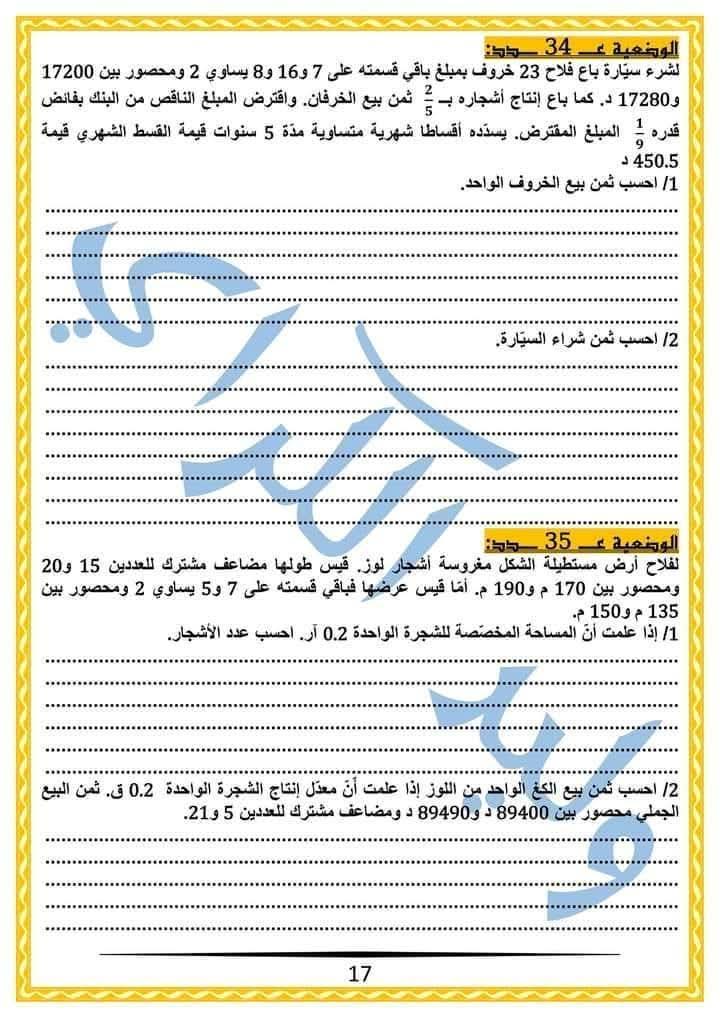 الوضعية عـــ 34 ـــدد:
لشرء سيّارة باع فلاح 23 خروف بمبلغ باقي قسمته على 7 و16 و8 يساوي 2 ومحصور بين 17200
و17280 د. كما باع إنتاج أشجاره بــ 2/5 ثمن بيع الخرفان. واقترض المبلغ الناقص من البنك بفائض
قدره 1/9 المبلغ المقترض. يسدّده أقساطا شهرية متساوية مدّة 5 سنوات قيمة القسط الشهري قيمة
450.5 د
1/ احسب ثمن بيع الخروف الواحد.
2/ احسب ثمن شراء السيّارة.
الوضعية عـــ 35 ـــدد:
لفلاح أرض مستطيلة الشكل مغروسة أشجار لوز. قيس طولها مضاعف مشترك للعددين 15 و20
ومحصور بين 170 م و190 م. أمّا قيس عرضها فباقي قسمته على 7 و5 يساوي 2 ومحصور بين
135 م و150 م.
1/ إذا علمت أنّ المساحة المخصّصة للشجرة الواحدة 0.2 آر. احسب عدد الأشجار.
2/ احسب ثمن بيع الكغ الواحد من اللوز إذا علمت أنّ معدّل إنتاج الشجرة الواحدة 0.2 ق. ثمن البيع
الجملي محصور بين 89400 د و89490 د ومضاعف مشترك للعددين 5 و21.
وليد الدراي
17